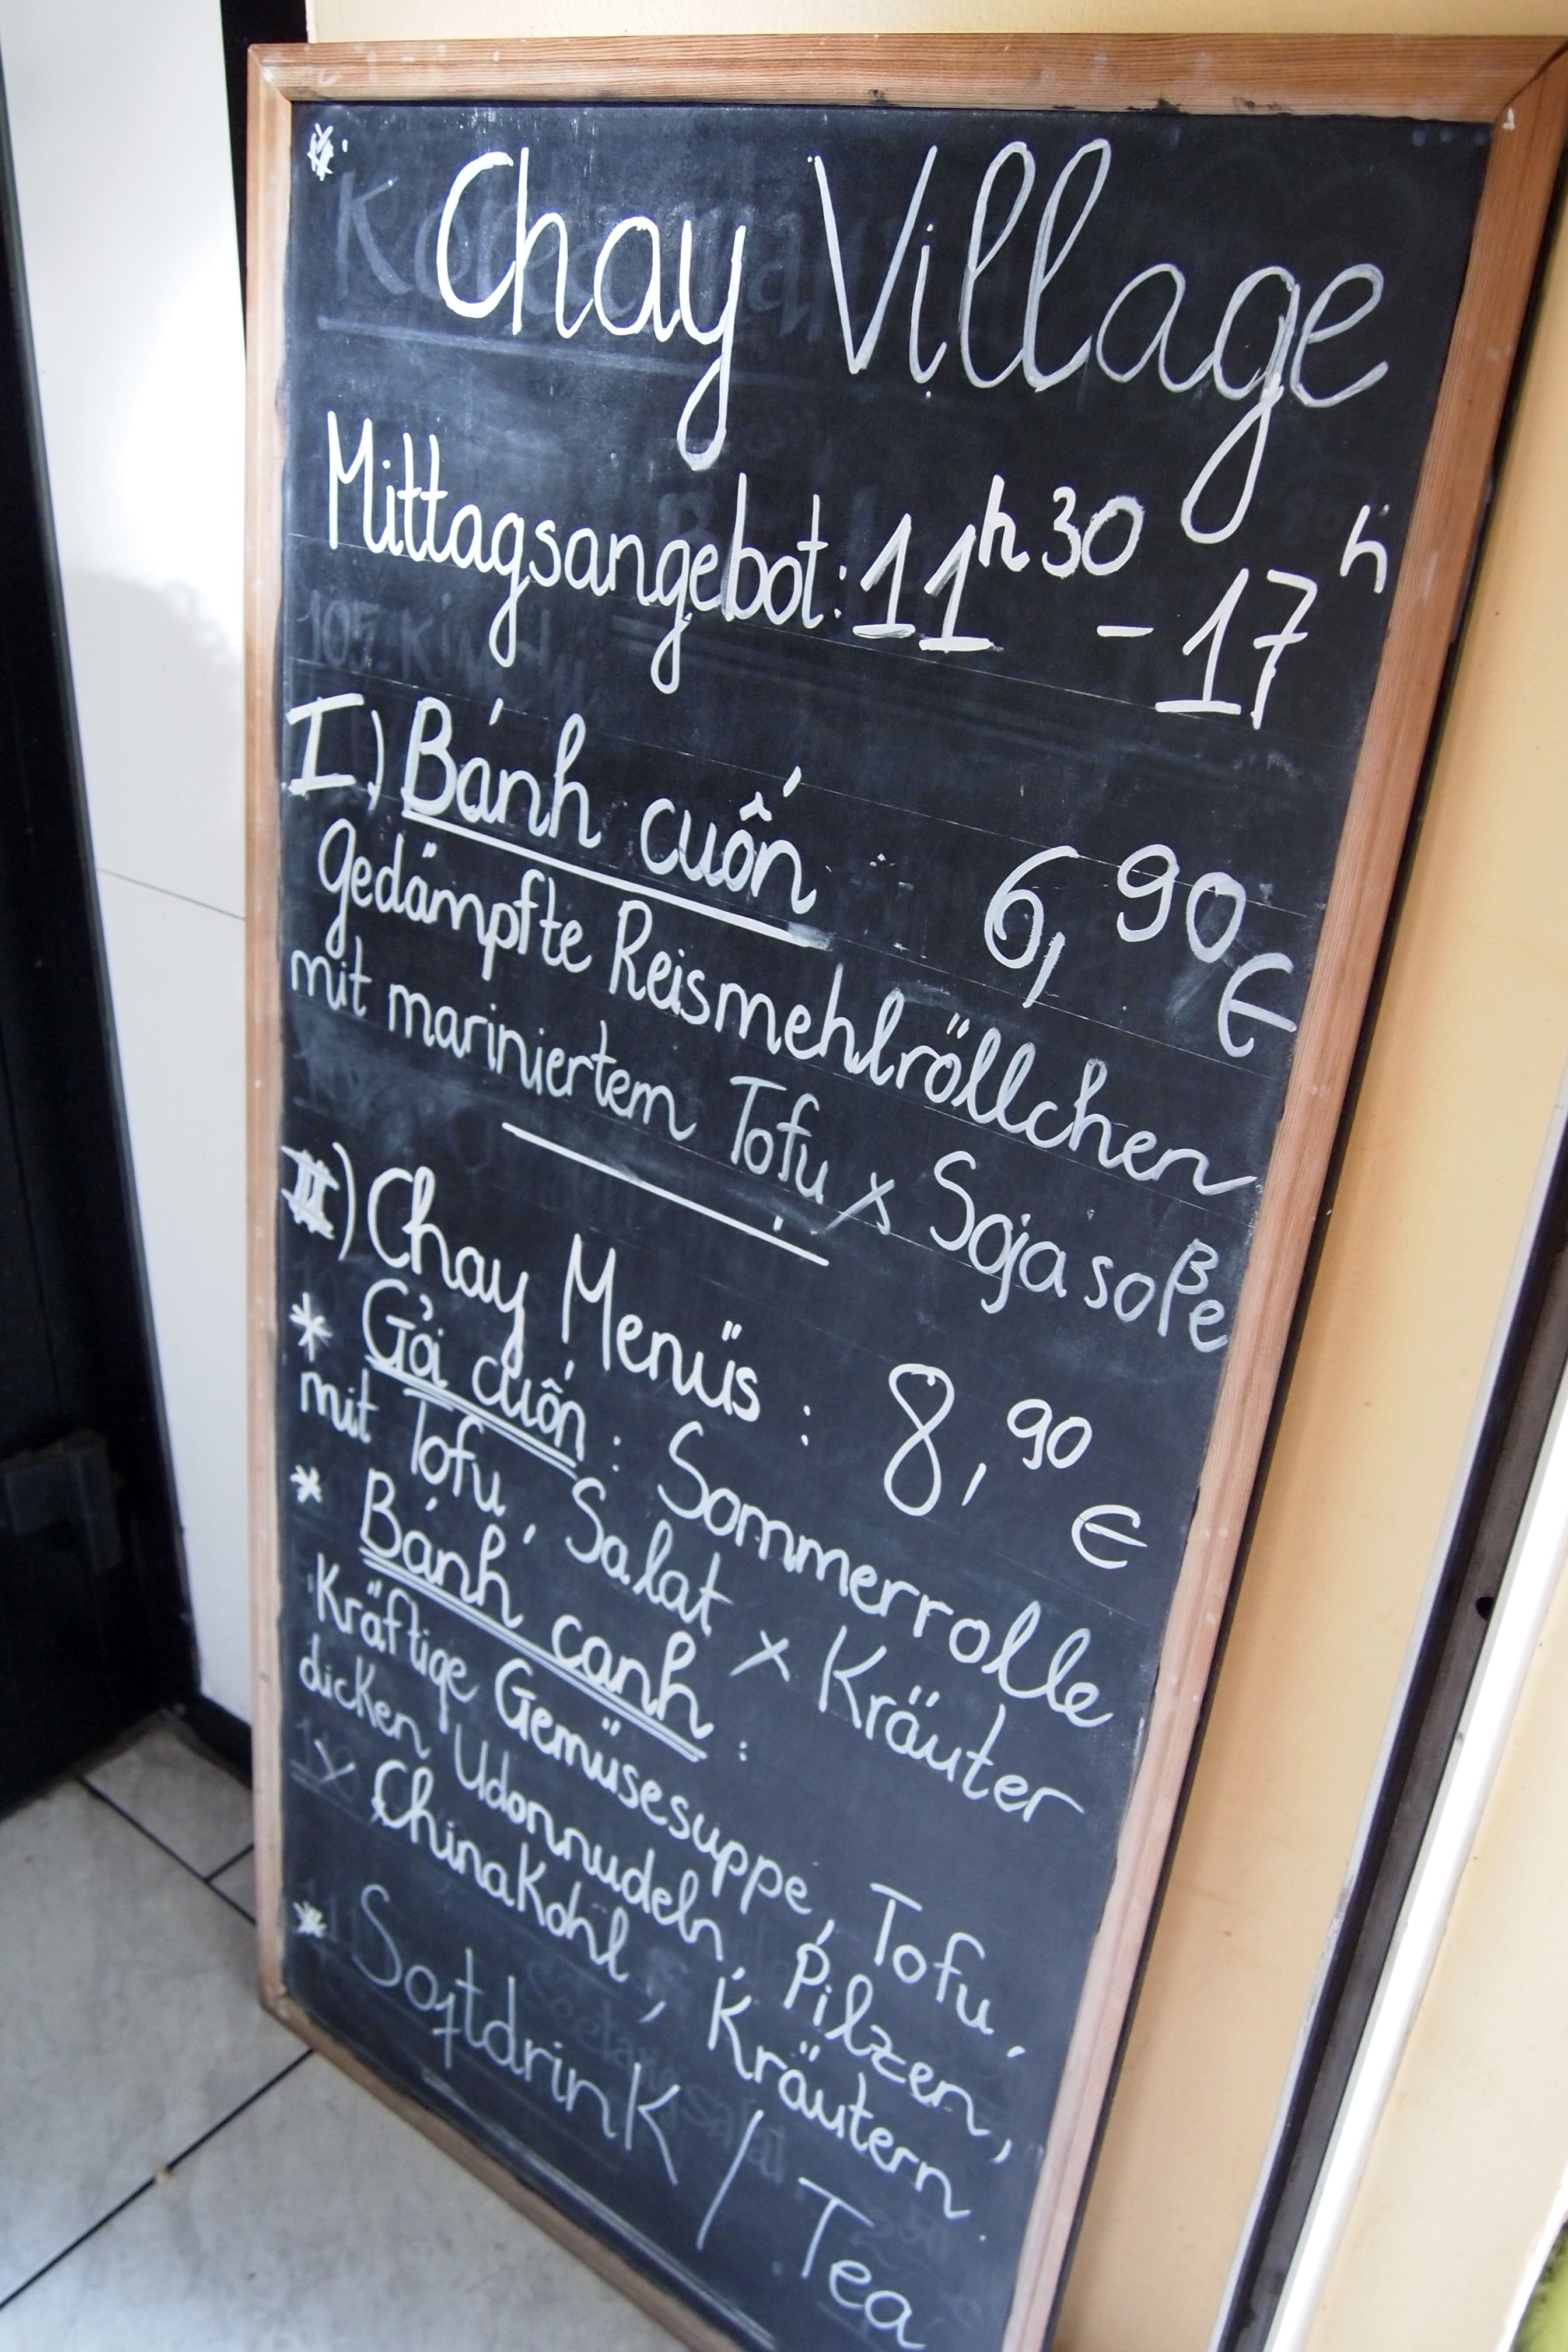 Chay Village
Mittagsangebot: 11h30 - 17h
I) Bánh cuốn 6,90 €
Gedämpfte Reismehlröllchen
mit mariniertem Tofu x Sojasoße
II) Chay Menüs : 8,90 €
* Gỏi cuốn : Sommerrolle
mit Tofu, Salat x Kräuter
* Bánh canh :
Kräftige Gemüsesuppe, Tofu,
dicken Udonnudeln, Pilzen,
x Chinakohl, Kräutern.
* Softdrink / Tea